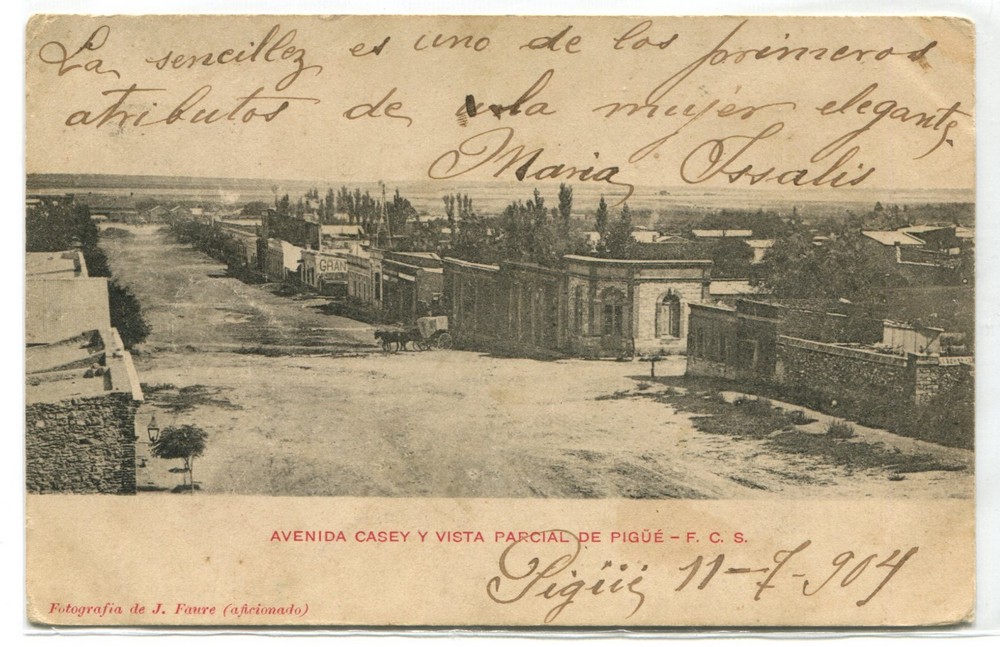 La sencillez es uno de los primeros
atributos de la mujer elegante.
Maria Issalis
GRAN
AVENIDA CASEY Y VISTA PARCIAL DE PIGÜÉ – F. C. S.
Pigüé 11-7-904
Fotografia de J. Faure (aficionado)